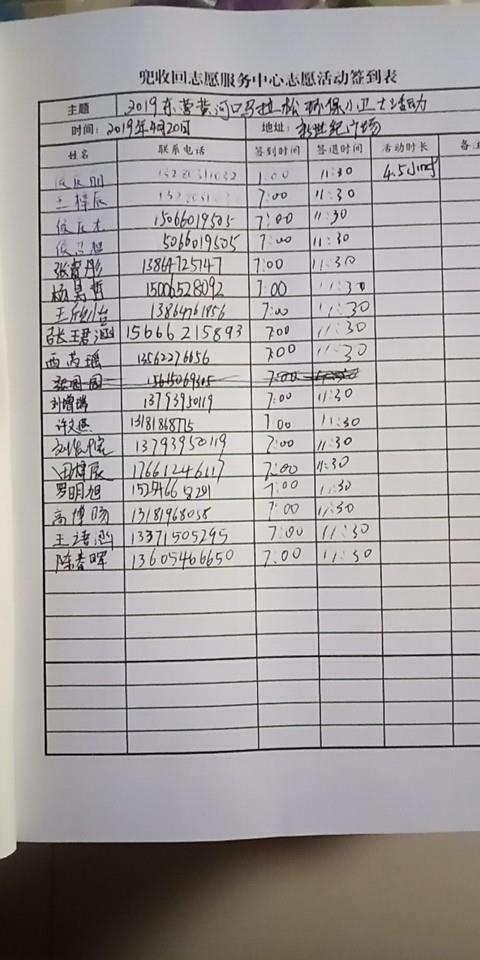 兜收回志愿服务中心志愿活动签到表
主题 2019东营黄河口马拉松 环保小卫士活动
时间：2019年4月20日 地址：新世纪广场
姓名 联系电话 签到时间 签退时间 活动时长 备注
1:00 11:30 4.5小时
7:00 11:30
15066019505 7:00 11:30
5066019505 7:00 11:30
13864725747 7:00 11:30
杨昊哲 15006528092 7:00 11:30
7:00 11:30
张王君涵 15666215893 7:00 11:30
西芮瑶 13562276656 7:00 11:30
7:00
刘增瑞 13793950119 7:00 11:30
许文燕 13181868775 7:00 11:30
13793950119 7:00 11:30
田博辰 17661246117 7:00 11:30
罗明旭 7:00 11:30
高博旸 13181968058 7:00 11:30
王语涵 13371505295 7:00 11:30
陈春晖 13605466650 7:00 11:30